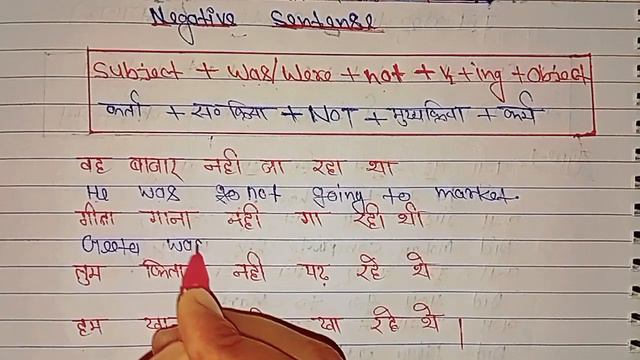 Negative Sentense
Subject + was/were + not + V₄ + ing + object
कर्ता + स० क्रिया + NOT + मुख्य क्रिया + कर्म
वह बाजार नही जा रहा था
He was not going to market.
गीता गाना नही गा रही थी
Geeta was
तुम नही पढ़ रहे थे
हम खा रहे थे |